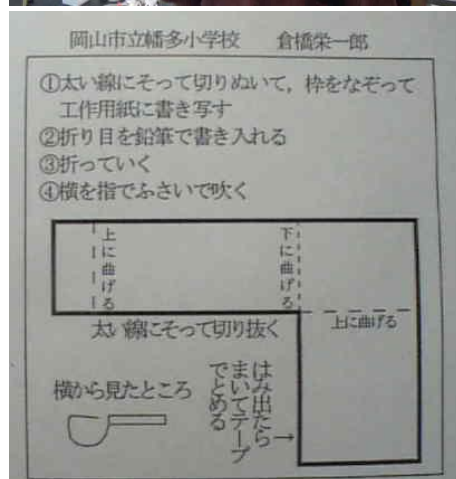 岡山市立幡多小学校　倉橋栄一郎
①太い線にそって切りぬいて，枠をなぞって
工作用紙に書き写す
②折り目を鉛筆で書き入れる
③折っていく
④横を指でふさいで吹く
上に曲げる
下に曲げる
上に曲げる
太い線にそって切り抜く
はみ出たら
まいてテープ
でとめる
→
横から見たところ